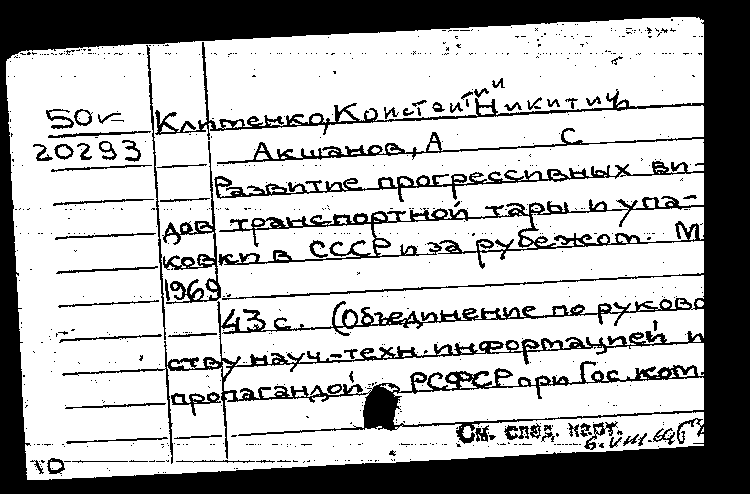 50г Клименко, Константин Никитич
20293 Акшанов, А С
Развитие прогрессивных ви-
дов транспортной тары и упа-
ковки в СССР и за рубежом. М
1969.
43 с. (Объединение по руково
ству науч.-техн. информацией и
пропагандой РСФСР при Гос. ком.
См. след. карт.